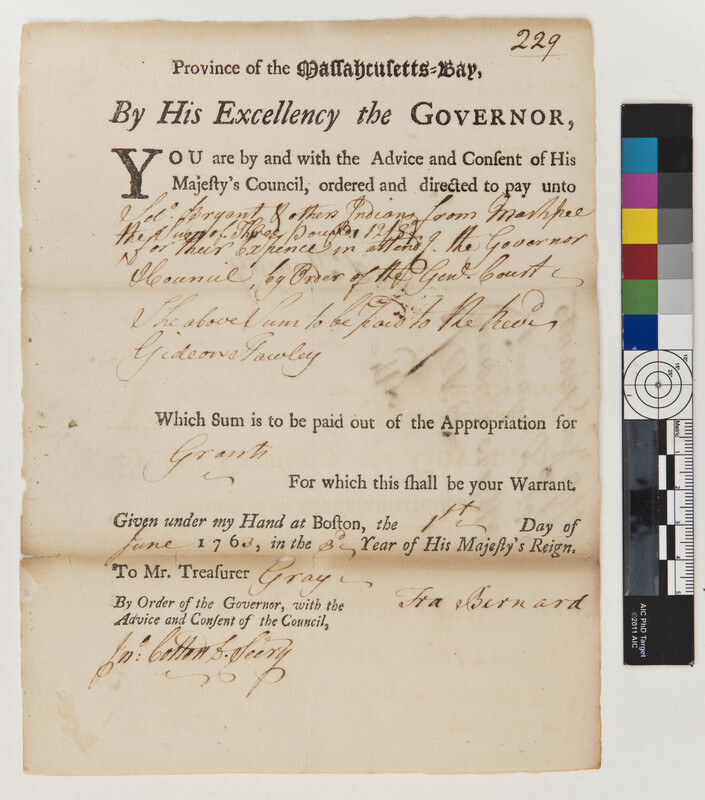 229
Province of the Massahcusetts=Bay,
By His Excellency the GOVERNOR,
YOU are by and with the Advice and Consent of His
Majesty's Council, ordered and directed to pay unto
Solo. Bryant & others Indians from Mashpee
the Sum of Three Pounds 12/
for their Expence in attendg. the Governor
& Council, by Order of the Genl. Court
The above Sum to be paid to the Revd.
Gideon Hawley
Which Sum is to be paid out of the Appropriation for
Grants
For which this shall be your Warrant.
Given under my Hand at Boston, the 1st Day of
June 1763, in the 3d Year of His Majesty's Reign.
To Mr. Treasurer Gray
By Order of the Governor, with the
Advice and Consent of the Council,
Fra Bernard
Jno: Cotton D. Secry
AIC PhD Target
©2011 AIC